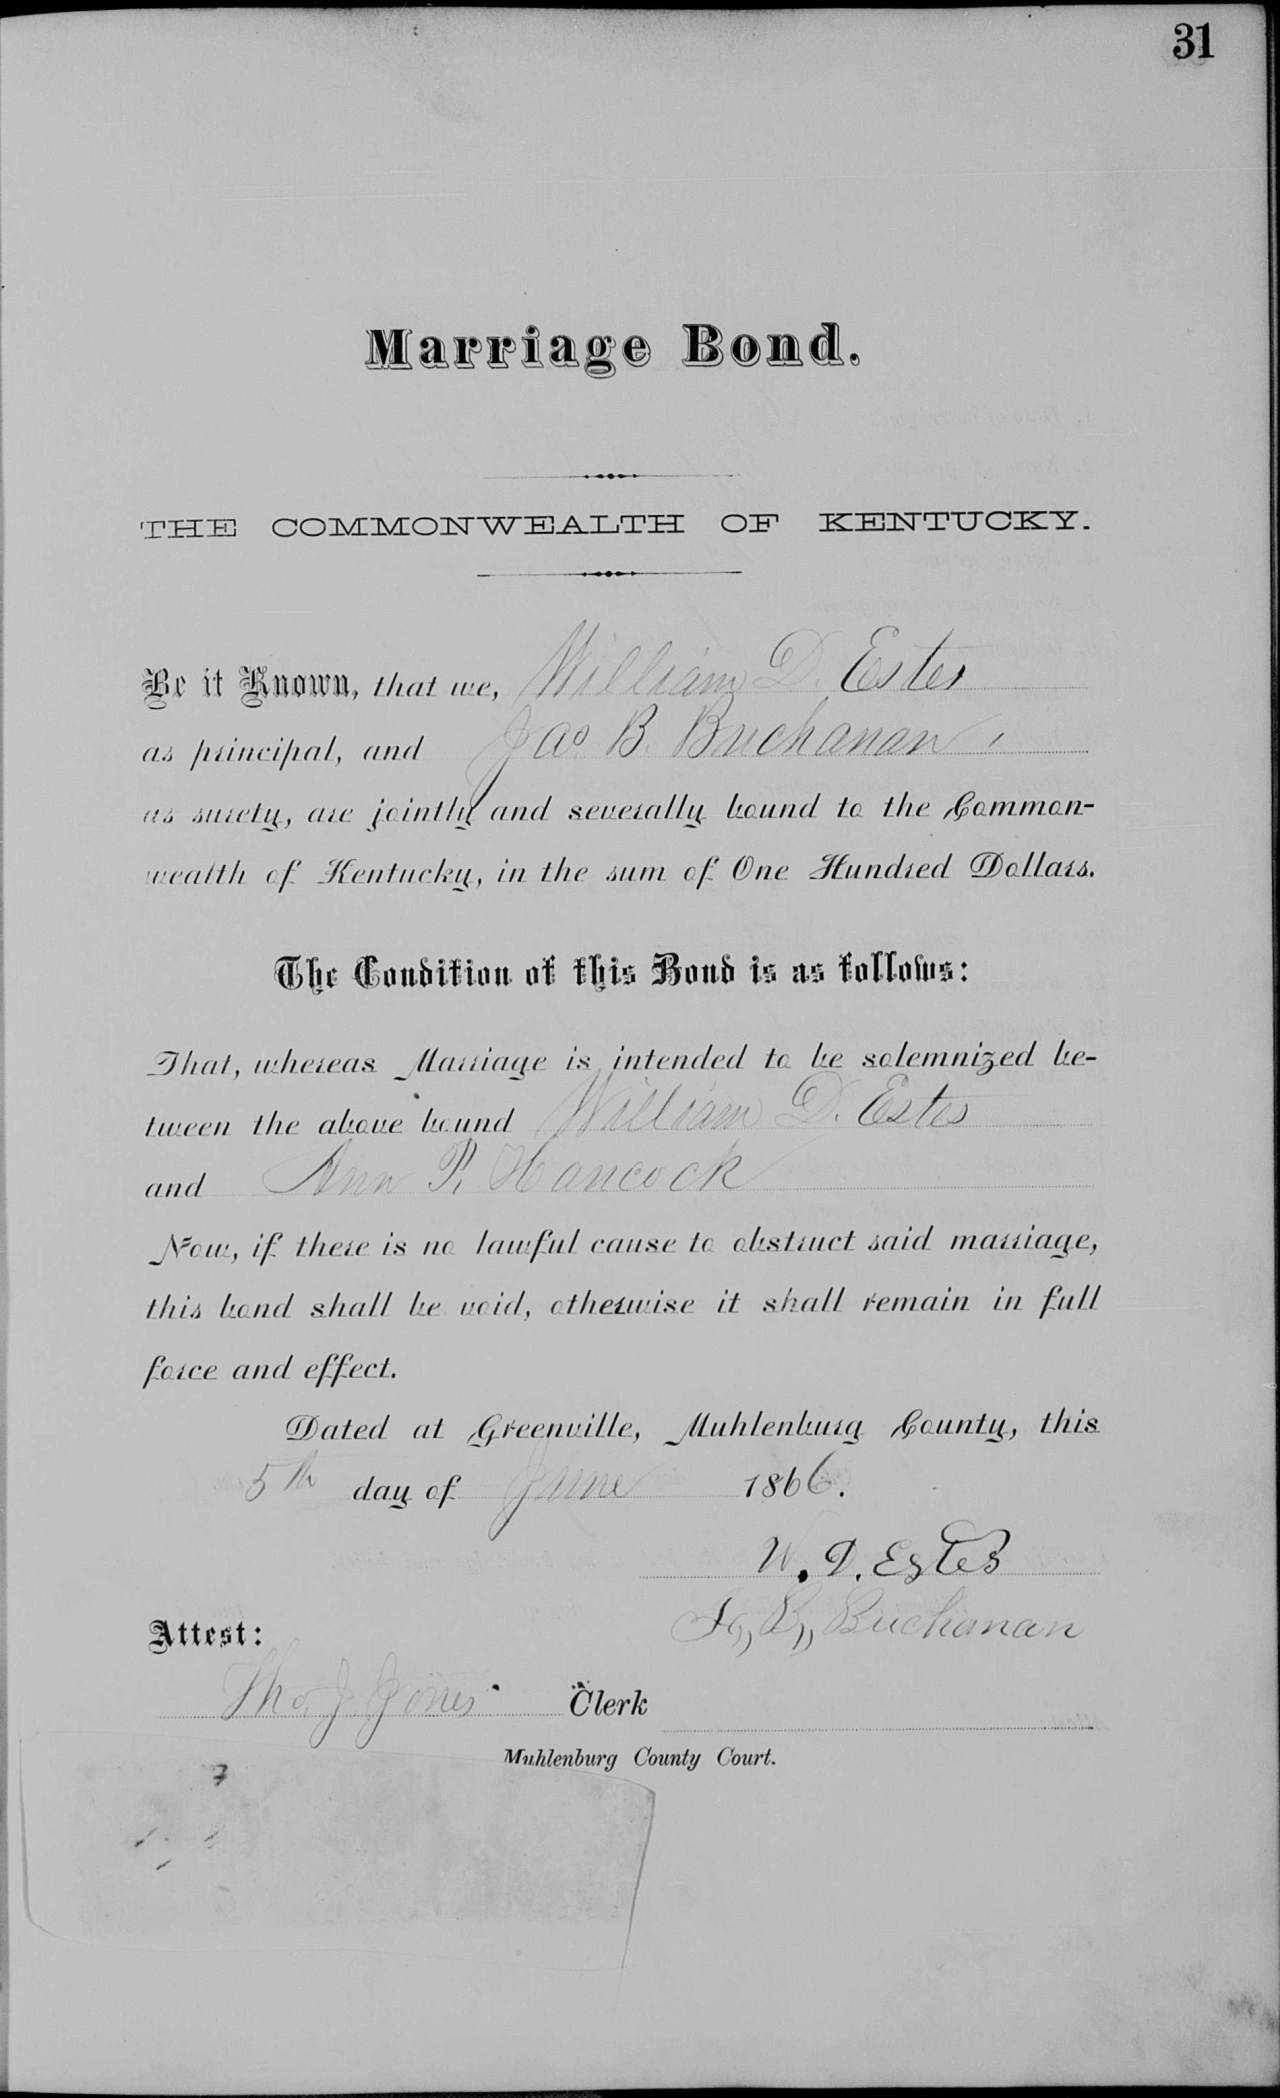 31
Marriage Bond.
THE COMMONWEALTH OF KENTUCKY.
Be it Known, that we, William D. Estes
as principal, and Jas B. Buchanan,
as surety, are jointly and severally bound to the Common-
wealth of Kentucky, in the sum of One Hundred Dollars.
The Condition of this Bond is as follows:
That, whereas Marriage is intended to be solemnized be-
tween the above bound William D. Estes
and Ann P. Hancock
Now, if there is no lawful cause to obstruct said marriage,
this bond shall be void, otherwise it shall remain in full
force and effect.
Dated at Greenville, Muhlenburg County, this
5th day of June 1866.
W. D. Estes
B,, Buchanan
Attest:
Tho. J. Jones Clerk
Muhlenburg County Court.